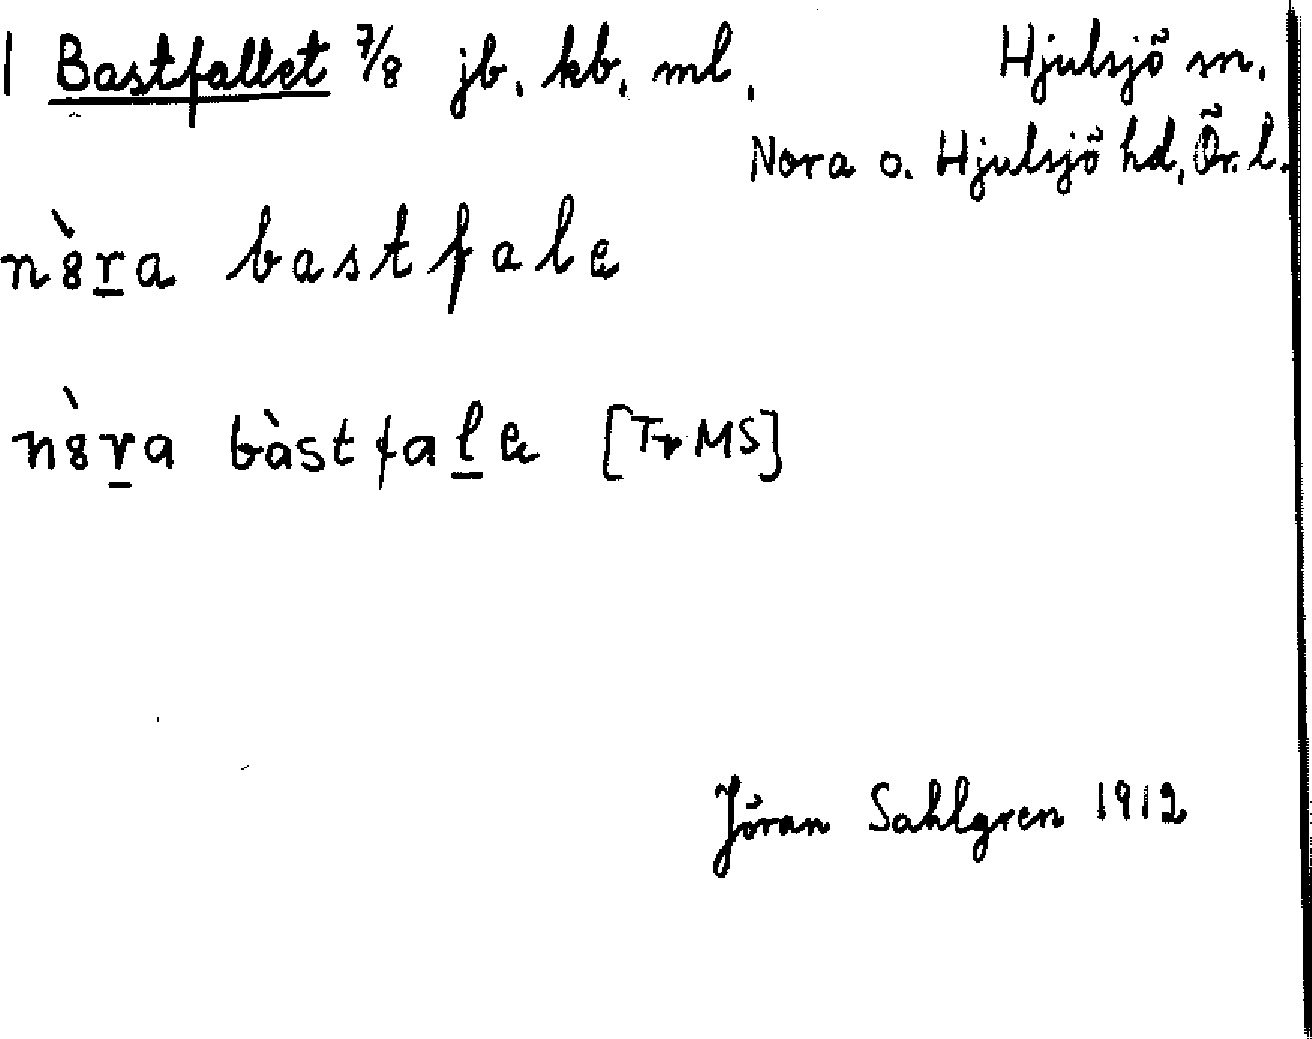 1 Bastfallet 7/8 jb. kb. ml. Hjulsjö sn.
Nora o. Hjulsjö hd, Ör. l.
nò̀ra bastfale
nò̀ra bàstfale [Tr MS]
Jöran Sahlgren 1912